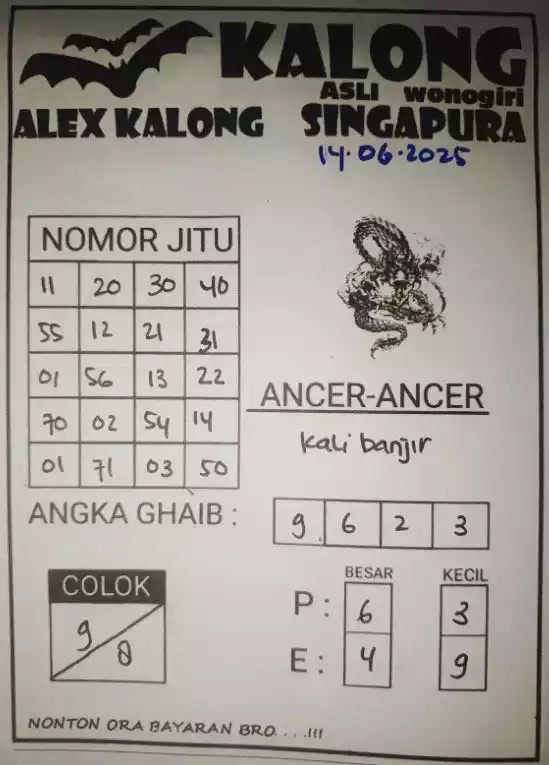 KALONG
ASLI wonogiri
ALEX KALONG SINGAPURA
14.06.2025
NOMOR JITU
11 20 30 40
55 12 21 31
01 56 13 22
70 02 54 14
01 71 03 50
ANCER-ANCER
Kali banjir
ANGKA GHAIB :
9 6 2 3
COLOK
9 8
BESAR KECIL
P : 6 3
E : 4 9
NONTON ORA BAYARAN BRO. . . .!!!